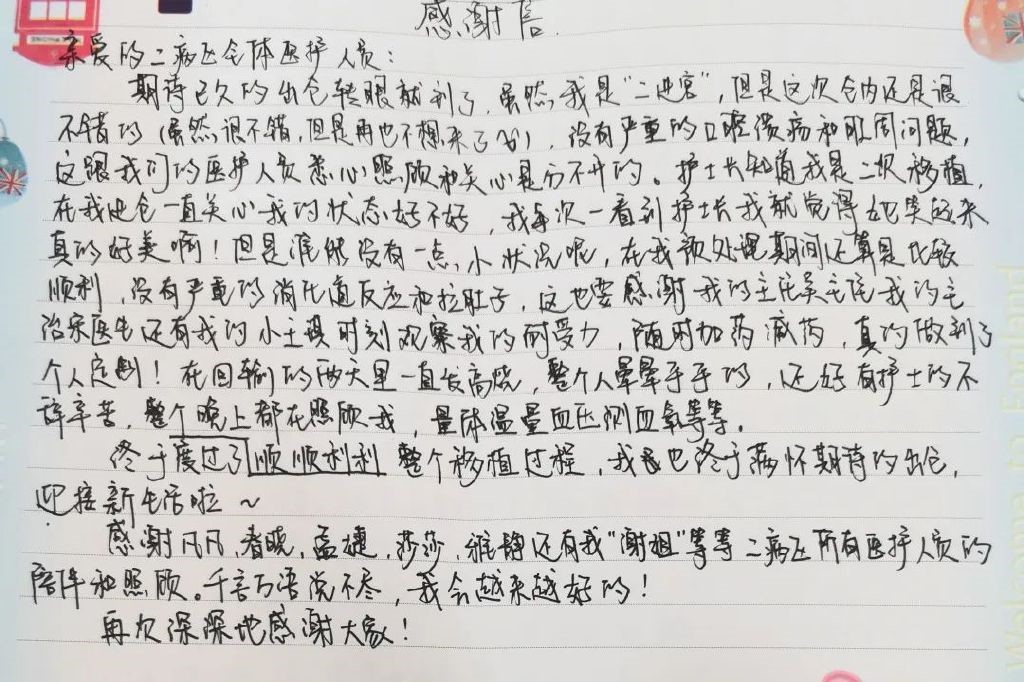 感谢信
亲爱的二病区全体医护人员：
期待已久的出仓转眼就到了，虽然我是“二进宫”，但是这次仓内还是很
不错的（虽然很不错，但是再也不想来了），没有严重的口腔溃疡和肛周问题，
这跟我们的医护人员悉心照顾和关心是分不开的。护士长知道我是二次移植，
在我进仓一直关心我的状态好不好，我每次一看到护士长我就觉得她笑起来
真的好美啊！但是谁能没有一点小状况呢，在我预处理期间还算是比较
顺利，没有严重的消化道反应和拉肚子，这也要感谢我的主任吴主任我的主
治宋医生还有我的小主璟时刻观察我的耐受力，随时加药减药，真的做到了
个人定制！在回输的两天里一直发高烧，整个人晕晕乎乎的，还好有护士的不
辞辛苦，整个晚上都在照顾我，量体温量血压测血氧等等。
终于度过了顺顺利利整个移植过程，我也终于满怀期待的出仓，
迎接新生活啦～
感谢凡凡，春晓，孟婕，莎莎，雅静还有我“谢姐”等等二病区所有医护人员的
陪伴和照顾。千言万语说不尽，我会越来越好的！
再次深深地感谢大家！
Welcome to England